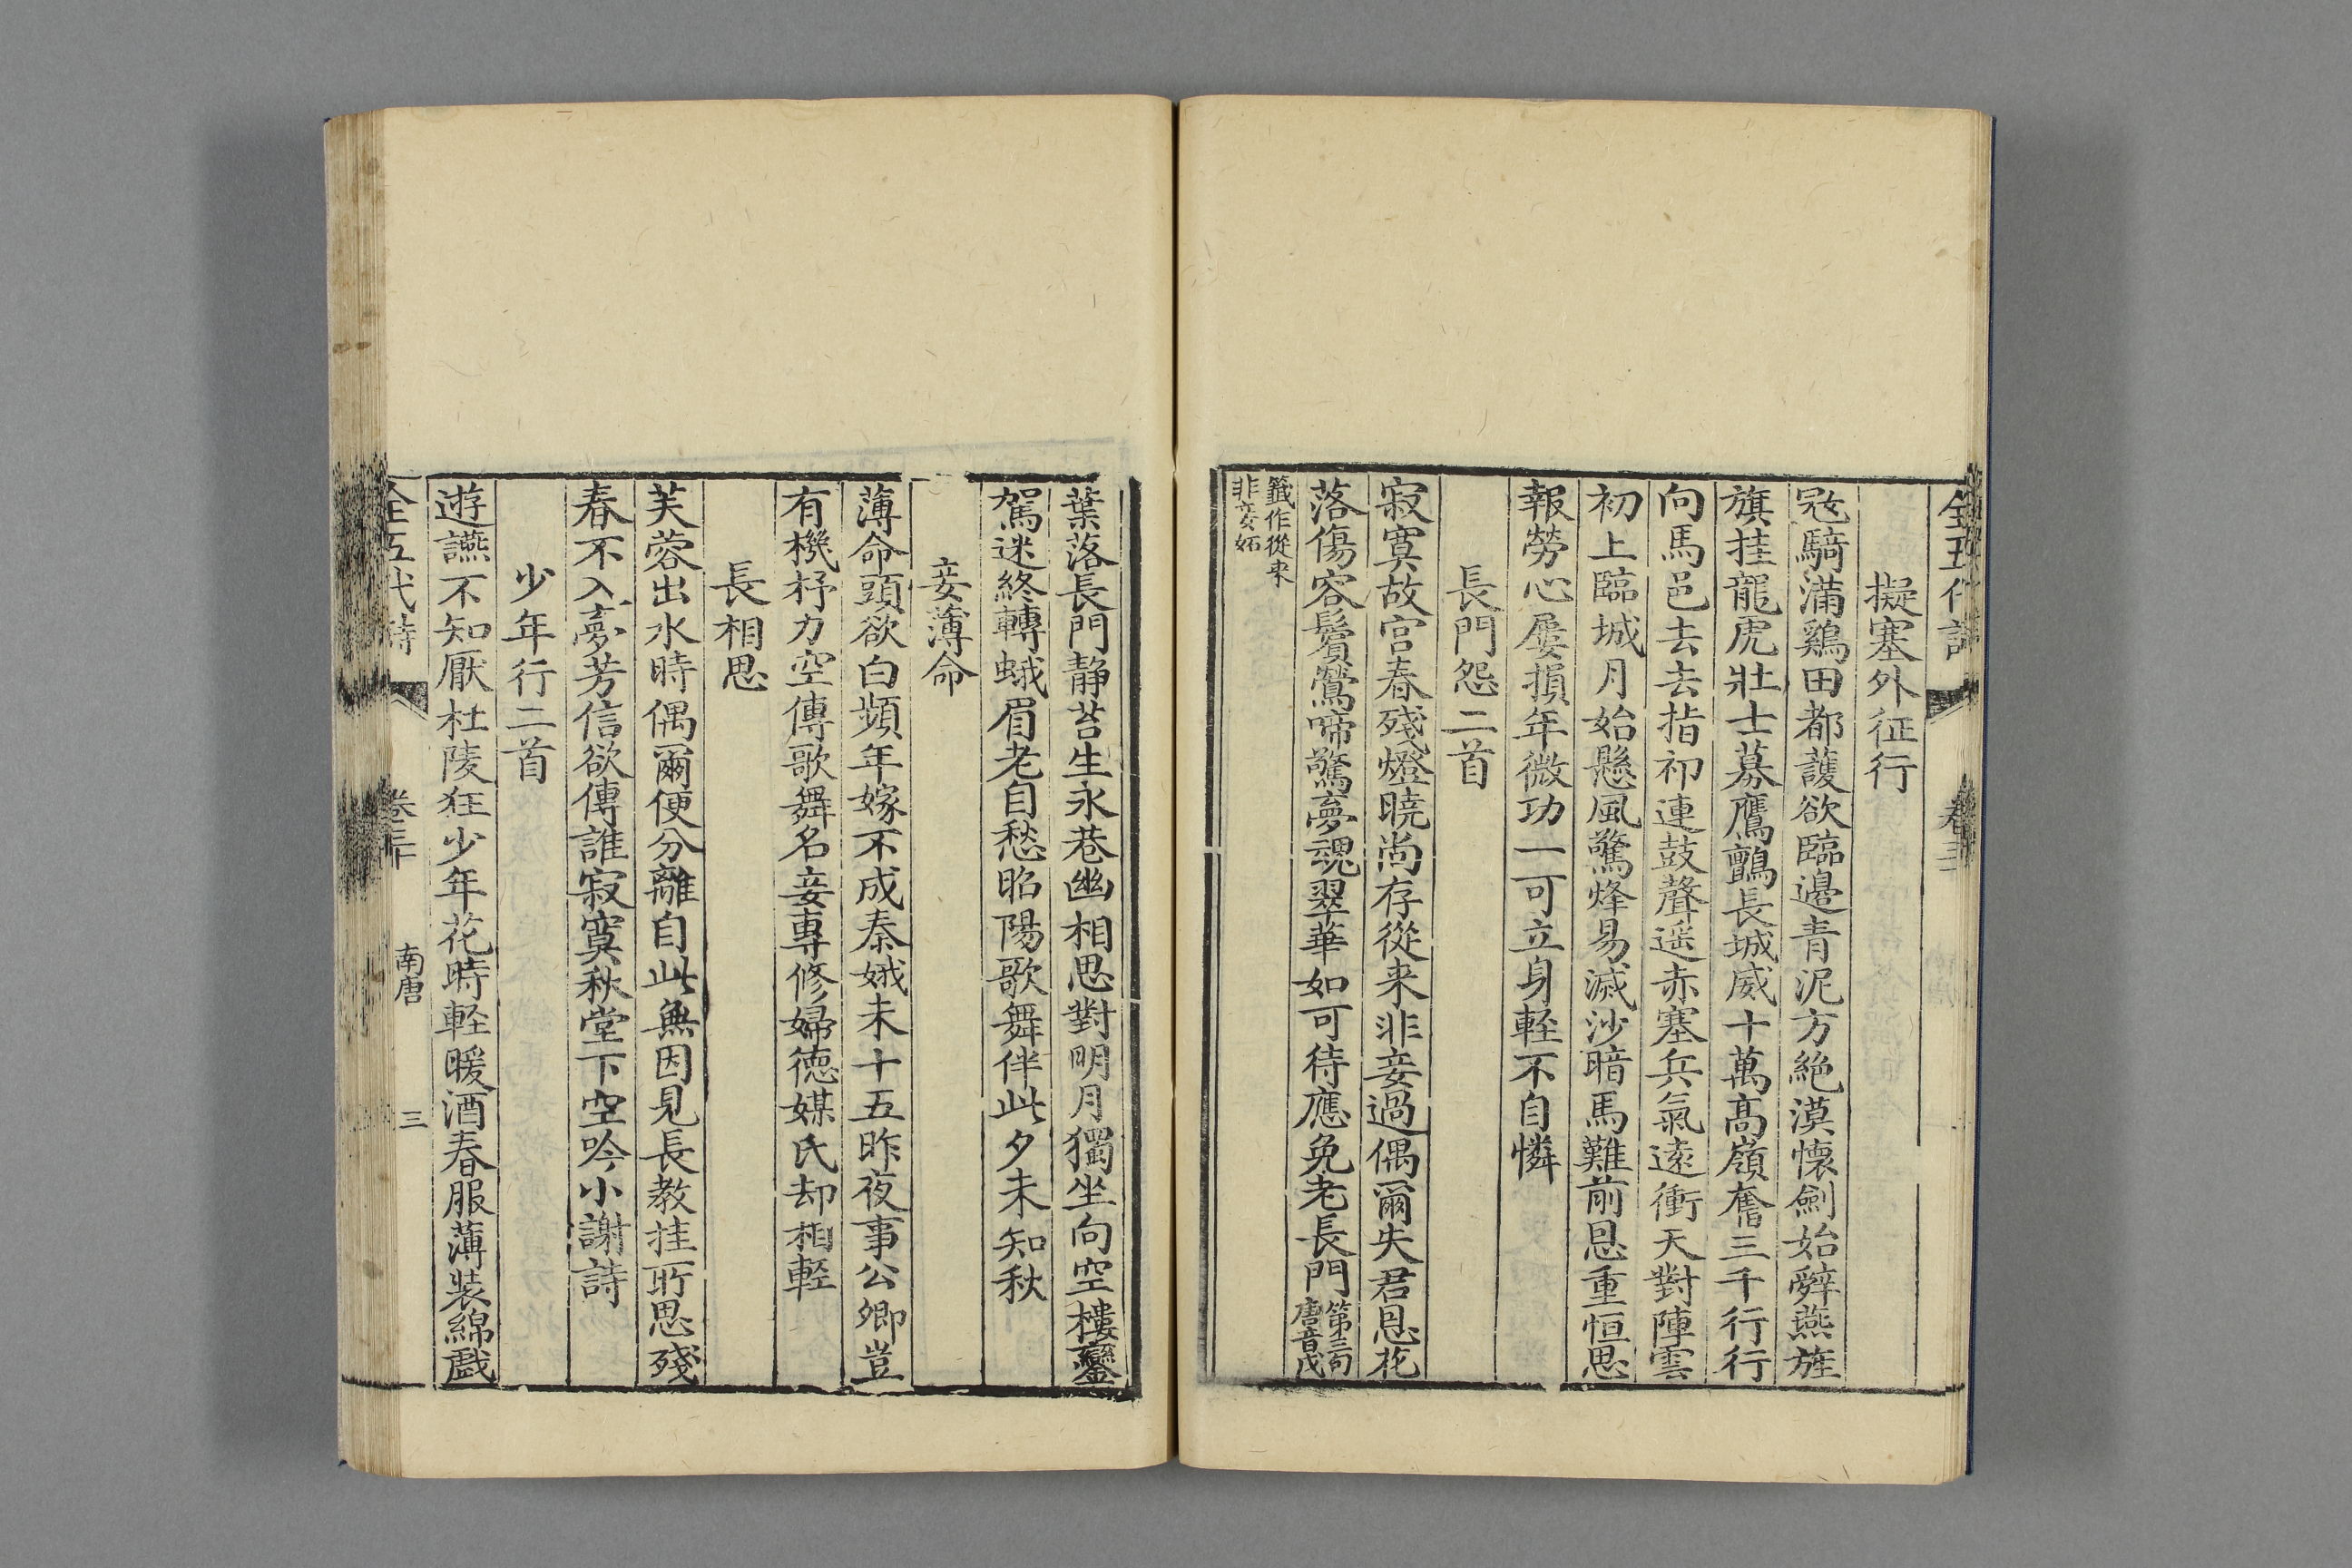 全五代詩
卷三
擬塞外征行
冦騎滿鷄田都護欲臨邊青泥方絕漠懷劍始辤燕旌
旗挂龍虎壯士募鷹鸇長城威十萬髙嶺奮三千行行
向馬邑去去指祁連鼓聲遥赤塞兵氣遠衝天對陣雲
初上臨城月始懸風驚烽易滅沙暗馬難前恩重恒思
報勞心屢損年微功一可立身輊不自憐
長門怨二首
寂寞故宫春殘燈曉尚存從来非妾過偶爾失君恩花
落傷容鬢鶯啼驚夢魂翠華如可待應免老長門第三句
唐音戊
籖作從来
非妾妬
葉落長門静苔生永巷幽相思對明月獨坐向空樓鑾
駕迷終轉蛾眉老自愁昭陽歌舞伴此夕未知秋
妾薄命
薄命頭欲白頻年嫁不成秦娥未十五昨夜事公卿豈
有機杼力空傳歌舞名妾專修婦德媒氏却相輊
長相思
芙蓉出水時偶爾便分離自此無因見長教挂所思殘
春不入夢芳信欲傳誰寂寞秋堂下空吟小謝詩
少年行二首
遊讌不知厭杜陵狂少年花時輊暖酒春服薄装綿戯
全五代詩
卷三十
南唐
三